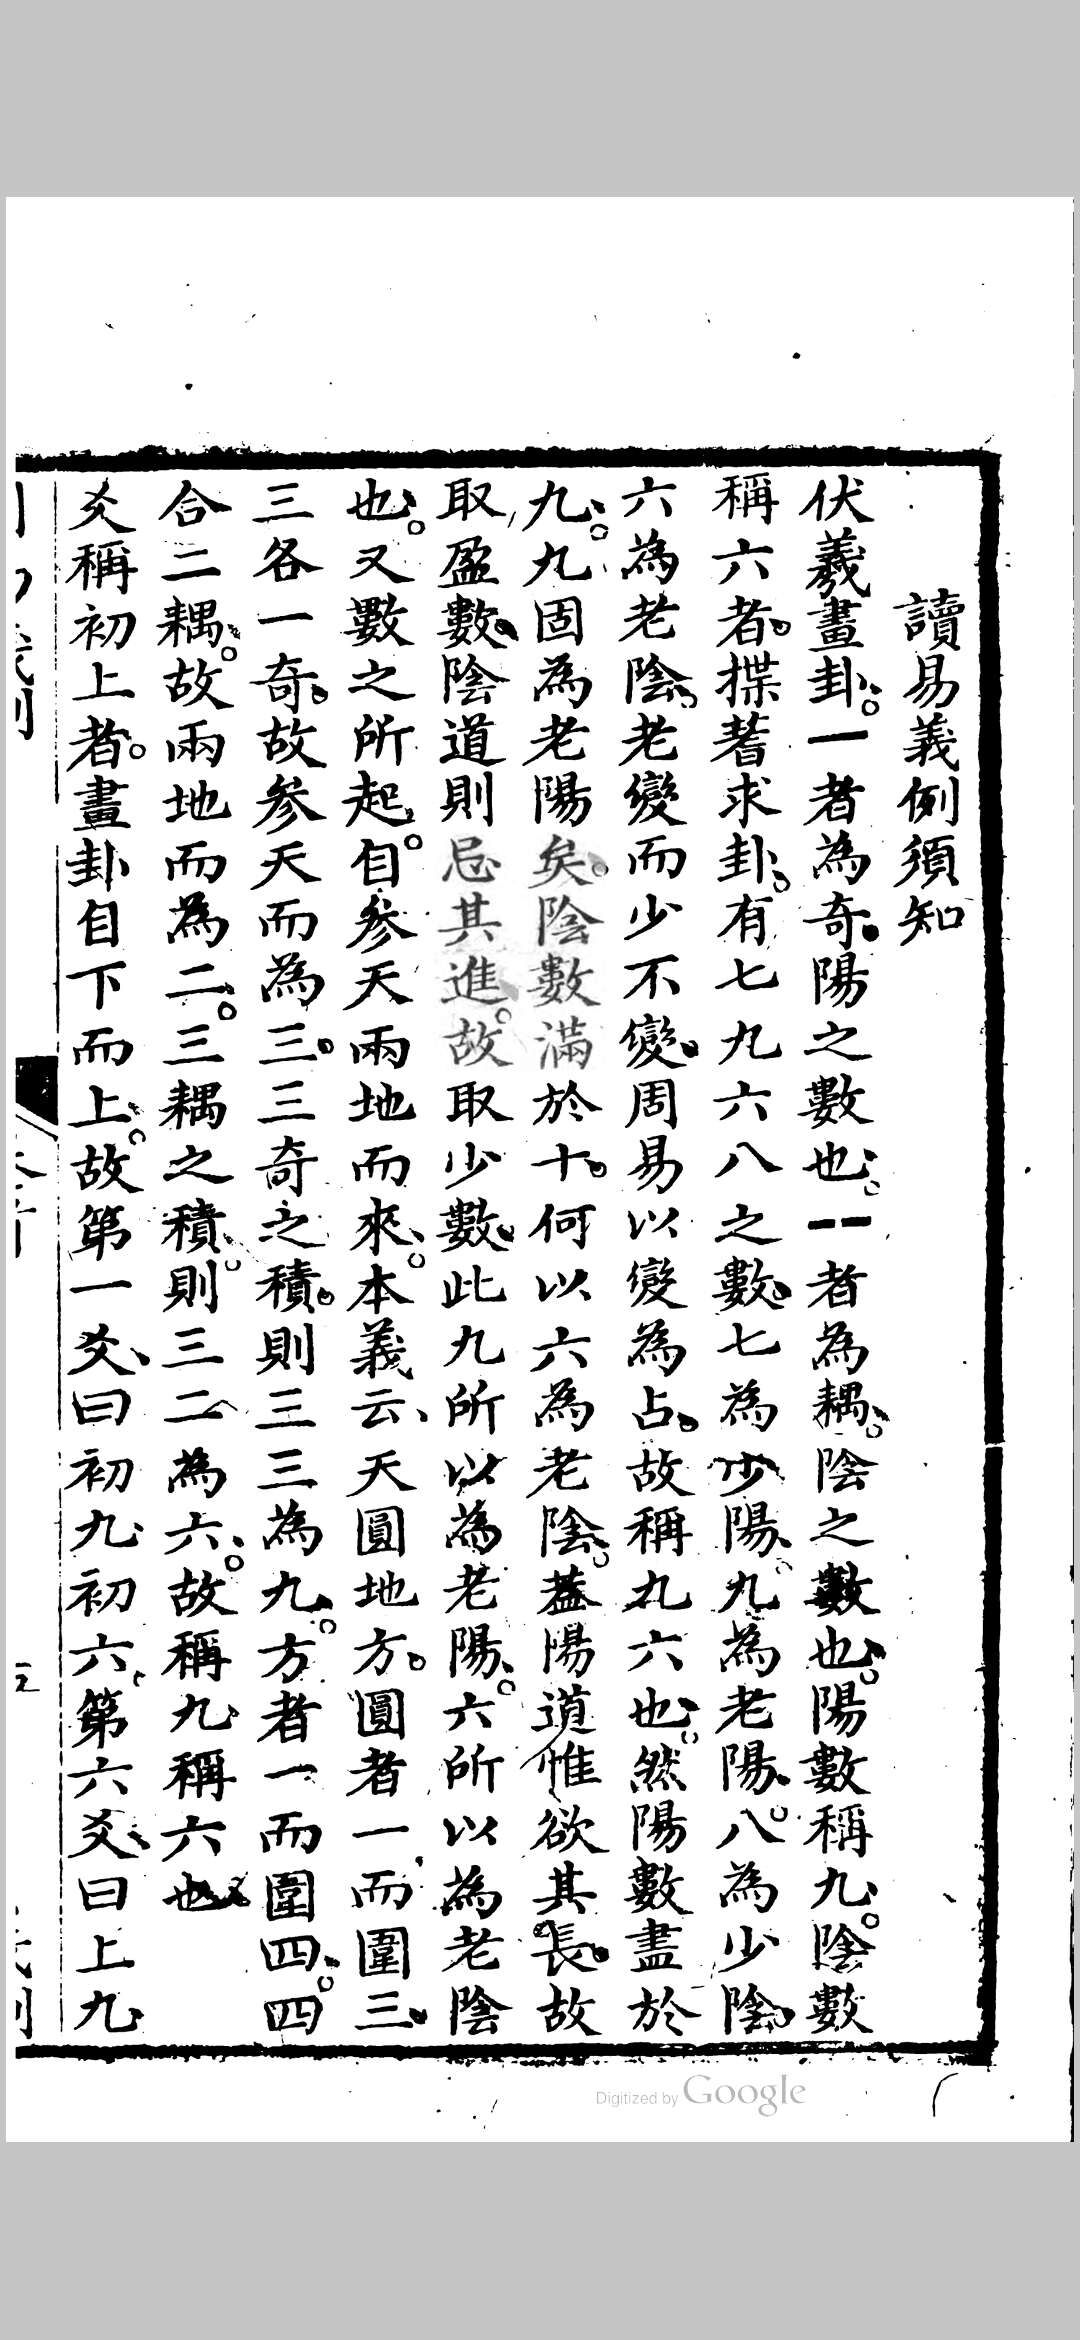 讀易義例須知
伏羲畫卦。一者為奇。陽之數也。--者為耦。陰之數也。陽數稱九。陰數
稱六者。揲蓍求卦。有七九六八之數。七為少陽。九為老陽。八為少陰。
六為老陰。老變而少不變。周易以變為占。故稱九六也。然陽數盡於
九。九固為老陽矣。陰數滿於十。何以六為老陰。蓋陽道惟欲其長。故
取盈數。陰道則忌其進。故取少數。此九所以為老陽。六所以為老陰
也。又數之所起。自參天兩地而來。本義云、天圓地方。圓者一而圍三。
三各一奇。故參天而為三。三奇之積。則三三為九。方者一而圍四。四
合二耦。故兩地而為二。三耦之積。則三二為六。故稱九稱六也
爻稱初上者。畫卦自下而上。故第一爻、曰初九初六、第六爻、曰上九
Digitized by Google